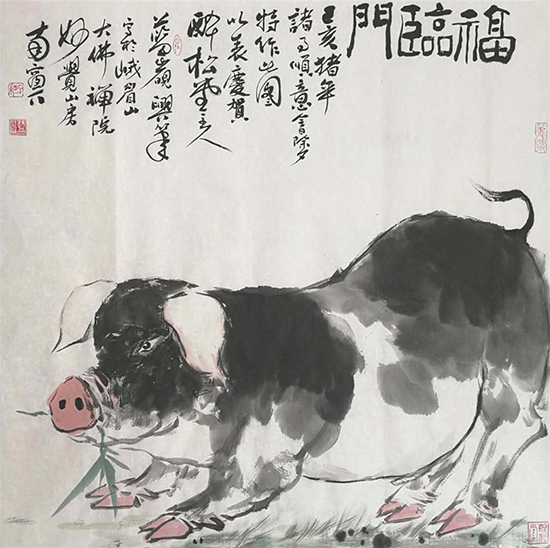 福臨門
己亥猪年
諸事順意除夕
特作此图
以表慶賀
醉松堂主人
興笔
写於峨眉山
大佛禅院
妙覺山房
南窗下